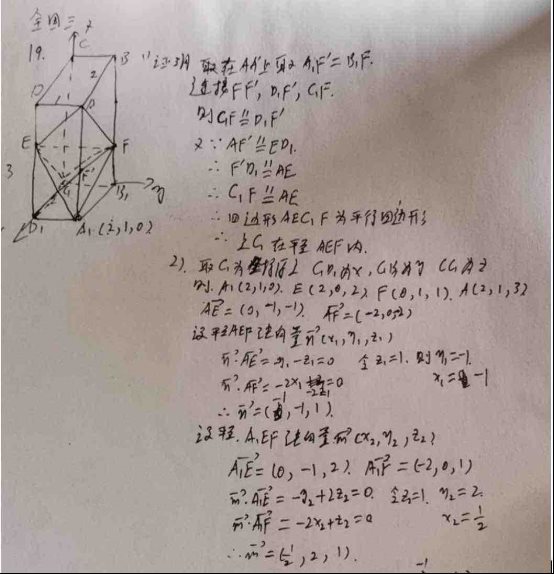 全国三
19.
1) 证明 取在AA'上取A₁F'=B₁F.
连接FF', D₁F', C₁F.
则C₁F∥=D₁F'
又∵AF'∥=ED₁.
∴F'D₁∥=AE
∴C₁F∥=AE
∴四边形AEC₁F为平行四边形
∴C₁在平面AEF内.
2). 取C₁为坐标原点 C₁D₁为x, C₁B₁为y CC₁为z
则. A₁(2,1,0). E(2,0,2) F(0,1,1). A(2,1,3)
AE=(0,-1,-1). AF=(-2,0,-2)
设平面AEF法向量n(x₁,y₁,z₁)
n·AE=-y₁-z₁=0 令z₁=1. 则y₁=-1.
n·AF=-2x₁-2z₁=0 x₁=-1
∴n=(-1,-1,1).
设平面A₁EF法向量m(x₂,y₂,z₂)
A₁E=(0,-1,2). A₁F=(-2,0,1)
m·A₁E=-y₂+2z₂=0. 令z₂=1. y₂=2.
m·A₁F=-2x₂+z₂=0 x₂=1/2
∴m=(1/2,2,1).